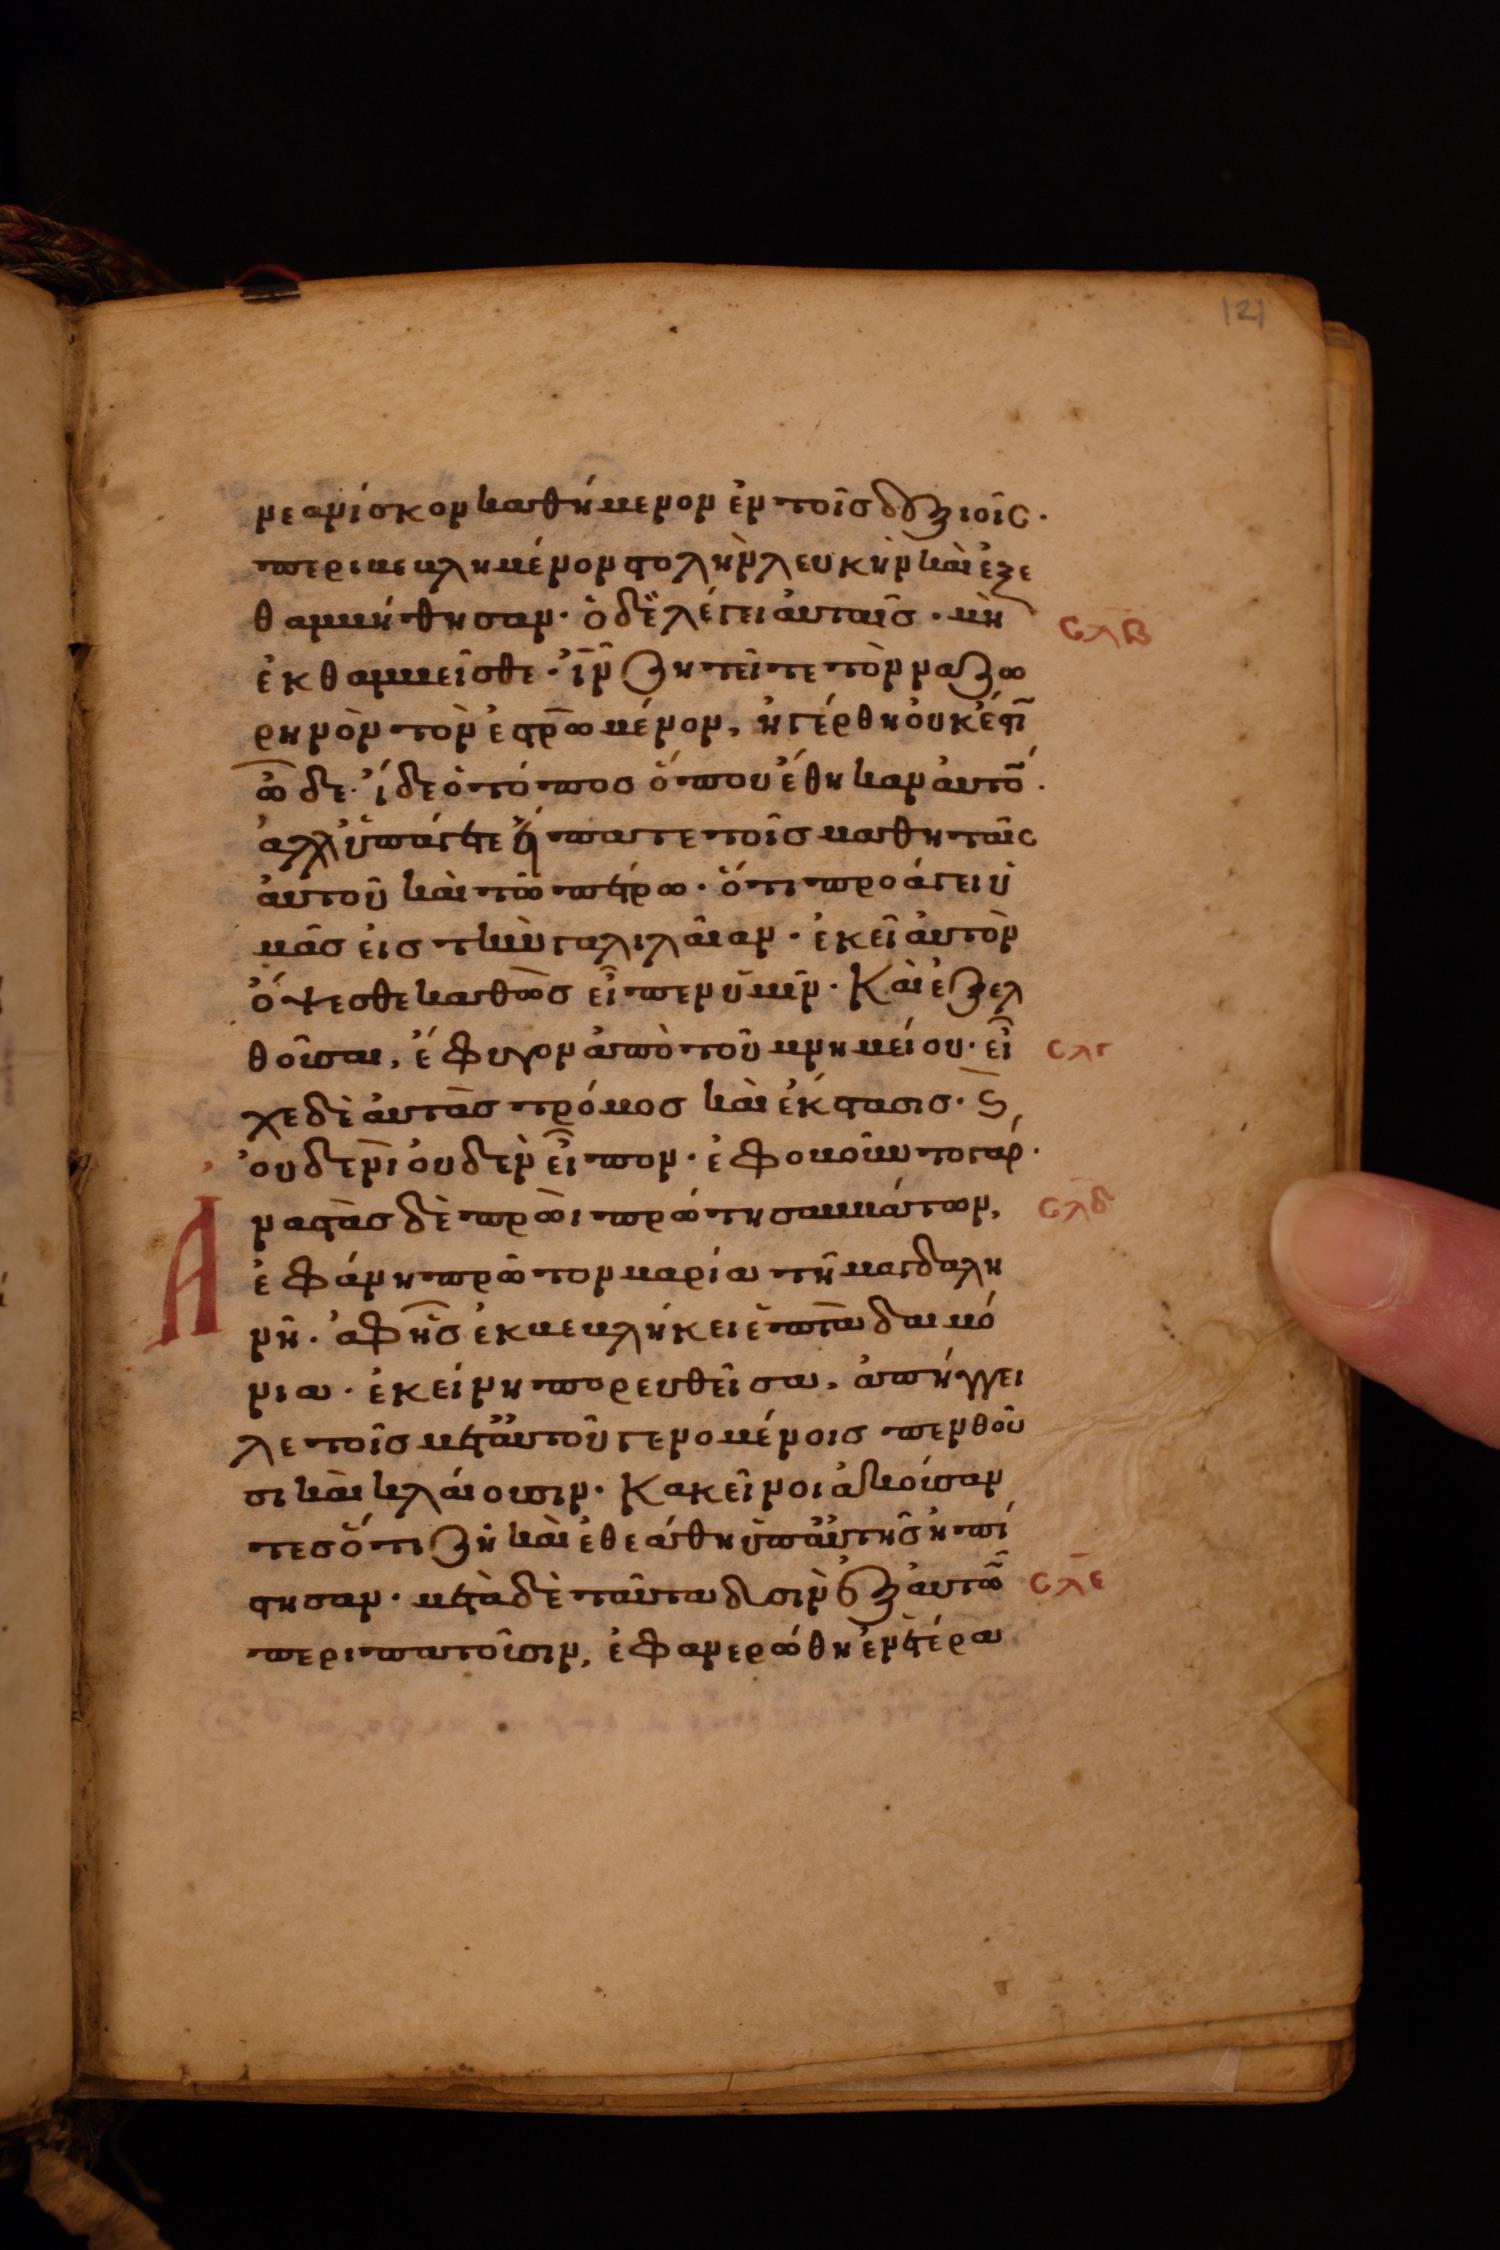 121
νεανίσκον καθήμενον ἐν τοῖς δεξιοῖς·
περιβεβλημένον στολὴν λευκὴν καὶ ἐξε
θαμβήθησαν· ὁ δὲ λέγει αὐταῖς · μὴ σλβ
ἐκθαμβεῖσθε · ἰν̄ ζητεῖτε τὸν ναζω
ρηνὸν τὸν ἐσρ̄ωμένον, ἠγέρθη οὐκ ἔστι
ὧδε· ἴδε ὁ τόπος ὅπου ἔθηκαν αὐτό·
ἀλλ' ὑπάγετε εἴπατε τοῖς μαθηταῖς
αὐτοῦ καὶ τῶ πέτρω· ὅτι προάγει ὑ
μᾶς εἰς τὴν γαλιλαίαν · ἐκεῖ αὐτὸν
ὄψεσθε καθὼς εἶπεν ὑμῖν · Καὶ ἐξελ
θοῦσαι, ἔφυγον ἀπὸ τοῦ μνημείου· εἶ σλγ
χε δὲ αὐτὰς τρόμος καὶ ἔκστασις· Ϛ
οὐδενὶ οὐδὲν εἶπον · ἐφοβοῦντο γάρ·
Ἀναστὰς δὲ πρωῒ πρώτη σαββάτων, σλδ
ἐφάνη πρῶτον μαρία τῆ μαγδαλη
νῆ · ἀφ' ἧς ἐκβεβλήκει ἑπτὰ δαιμό
νια · ἐκείνη πορευθεῖσα, ἀπήγγει
λε τοῖς μετ' αὐτοῦ γενομένοις πενθοῦ
σι καὶ κλαίουσιν· Κακεῖνοι ἀκούσαν
τες ὅτι ζῆ καὶ ἐθεάθη ὑπ' αὐτῆς ἠπί
στησαν · μετὰ δὲ ταῦτα δυσὶν ἐξ αὐτῶ σλε
περιπατοῦσιν, ἐφανερώθη ἐν ἑτέρα